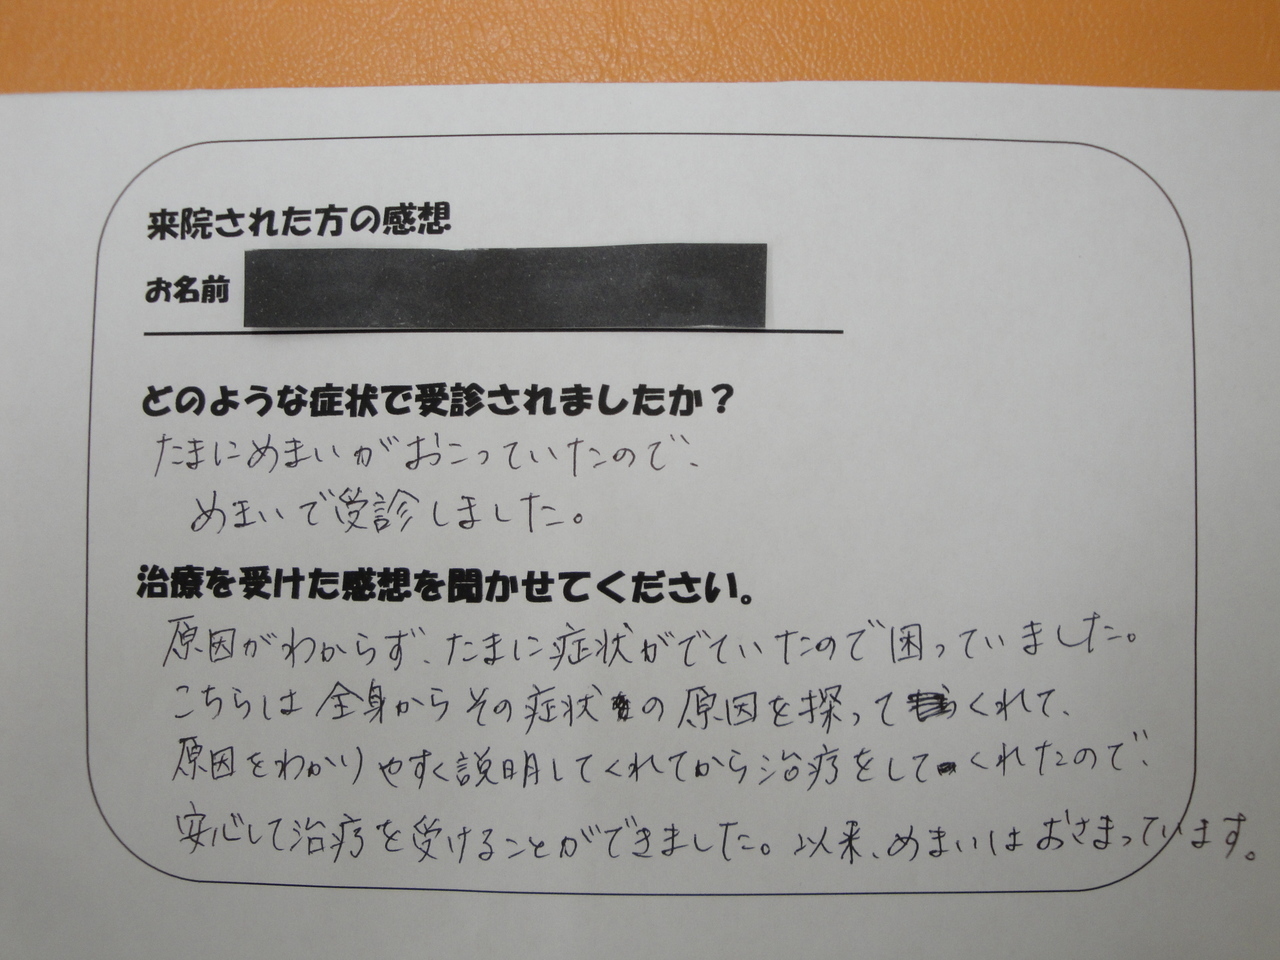 来院された方の感想
お名前
どのような症状で受診されましたか？
たまにめまいがおこっていたので、
めまいで受診しました。
治療を受けた感想を聞かせてください。
原因がわからず、たまに症状がでていたので困っていました。
こちらは全身からその症状の原因を探ってくれて、
原因をわかりやすく説明してくれてから治療をしてくれたので、
安心して治療を受けることができました。以来、めまいはおさまっています。